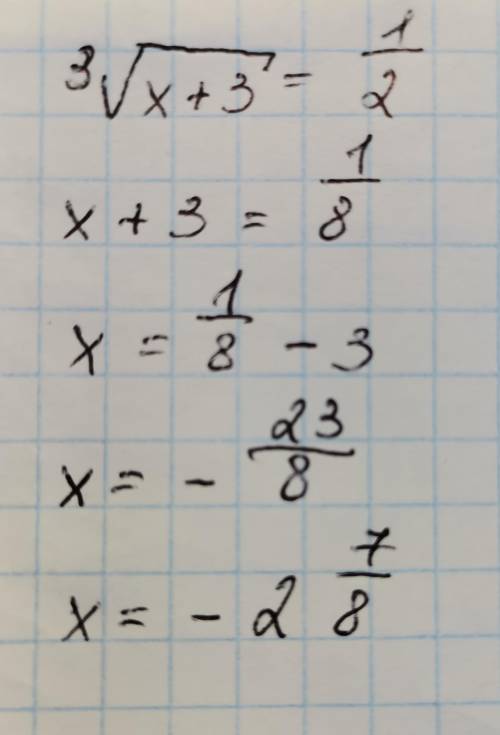 ³√(x+3) = 1/2
x + 3 = 1/8
x = 1/8 - 3
x = - 23/8
x = - 2 7/8